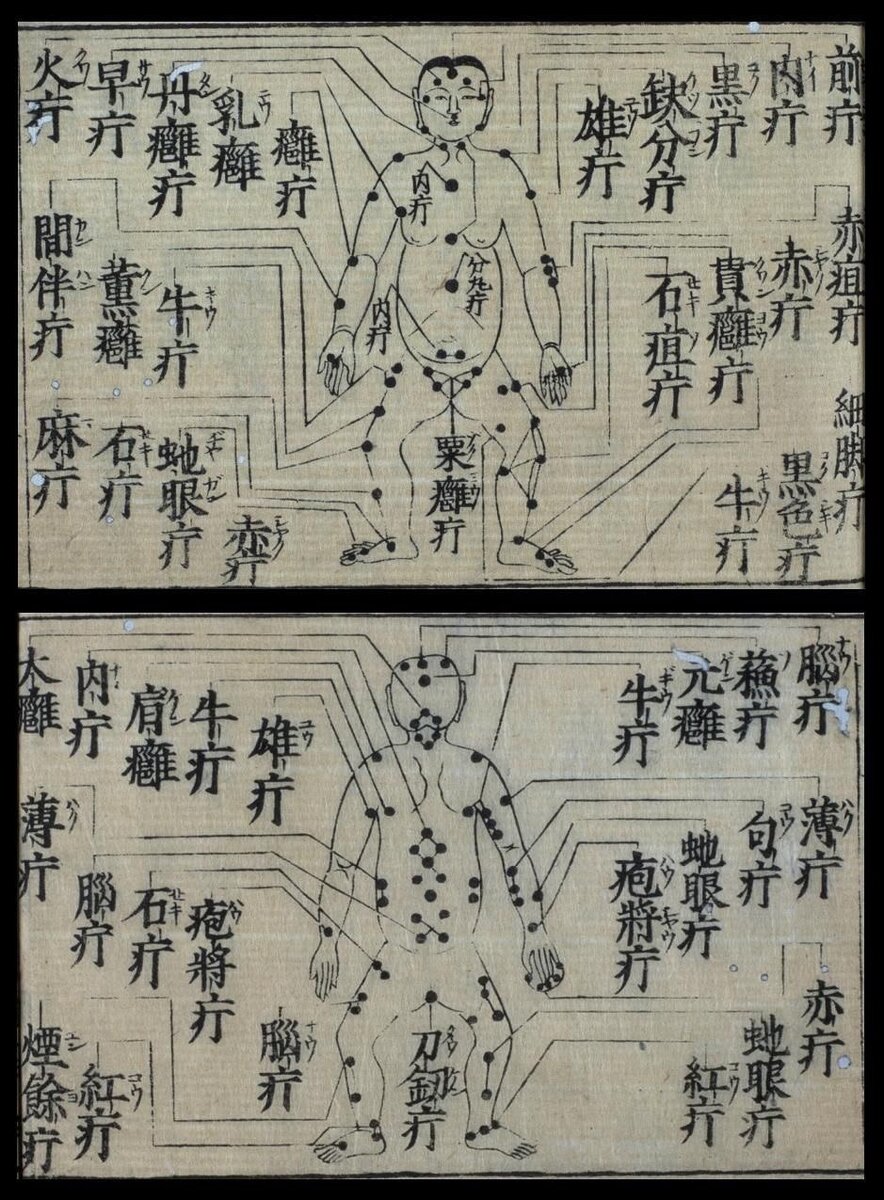 前疔
内疔
黒疔
缺分疔
雄疔
癰疔
乳癰
丹癰疔
早疔
火疔
赤疽疔
赤疔
貴癰疔
石疽疔
内疔
内疔
牛疔
薫癰
間伴疔
細脚疔
黒色疔
牛疔
粟癰疔
赤疔
虵眼疔
石疔
麻疔
腦疔
蘓疔
元癰
牛疔
雄疔
牛疔
肩癰
内疔
大癰
薄疔
句疔
虵眼疔
疱將疔
疱將疔
石疔
腦疔
薄疔
赤疔
虵眼疔
紅疔
刀釼疔
腦疔
紅疔
煙餘疔